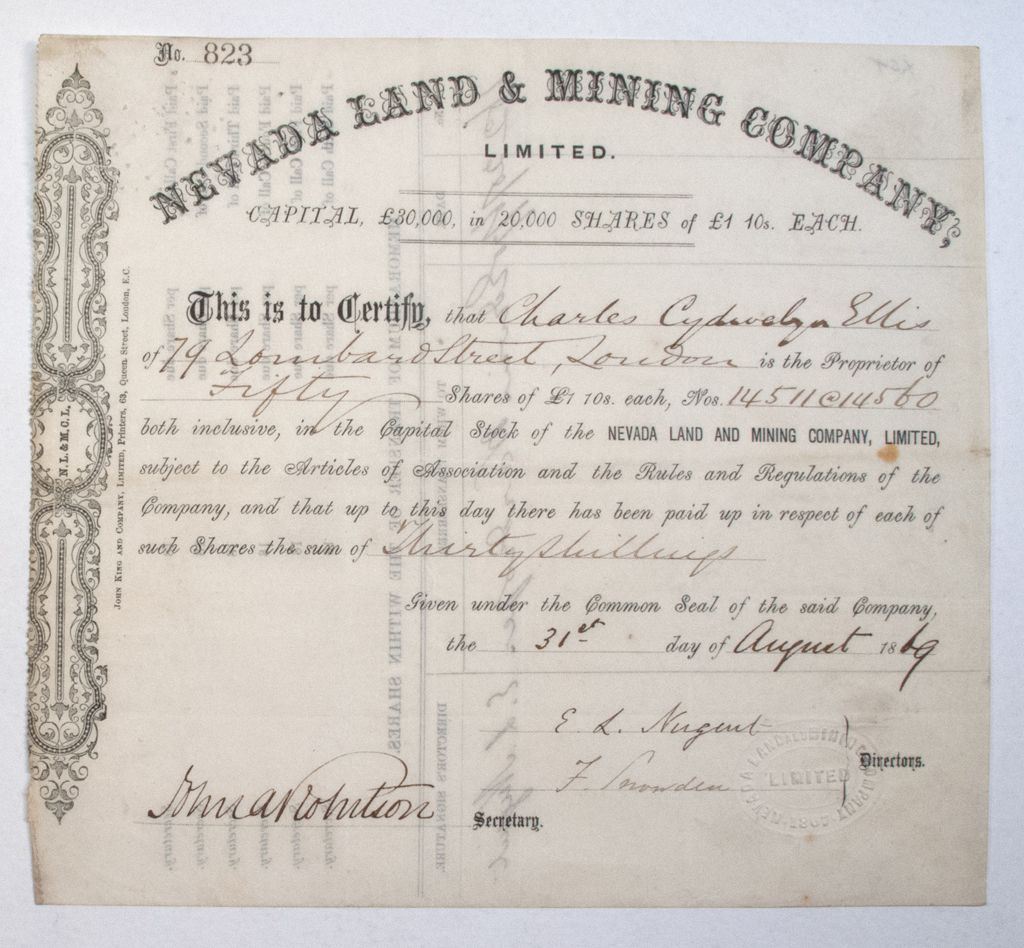 No. 823
NEVADA LAND & MINING COMPANY,
LIMITED.
CAPITAL, £30,000, in 20,000 SHARES of £1 10s. EACH.
This is to Certify, that Charles Cydwelyn Ellis
of 79 Lombard Street, London is the Proprietor of
Fifty Shares of £1 10s. each, Nos. 14511@14560
both inclusive, in the Capital Stock of the NEVADA LAND AND MINING COMPANY, LIMITED,
subject to the Articles of Association and the Rules and Regulations of the
Company, and that up to this day there has been paid up in respect of each of
such Shares the sum of Thirty Shillings
Given under the Common Seal of the said Company,
the 31st day of August 1869
E. L. Nugent
F. Snowden
Directors.
John A Robertson
Secretary.
N.L.&M.C.L.
JOHN KING AND COMPANY, LIMITED, Printers, 63, Queen Street, London, E.C.
NEVADA LAND AND MINING COMPANY
LIMITED